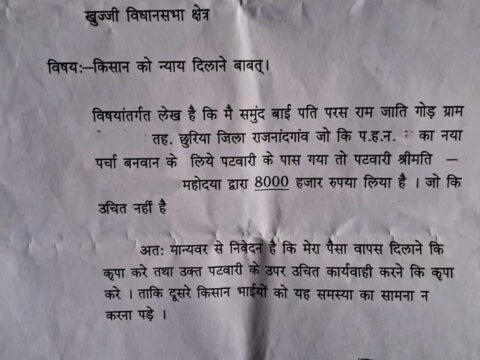 खुज्जी विधानसभा क्षेत्र
विषय:–किसान को न्याय दिलाने बाबत्।
विषयांतर्गत लेख है कि मै समुंद बाई पति परस राम जाति गोड़ ग्राम
तह. छुरिया जिला राजनांदगांव जो कि प.ह.न. का नया
पर्चा बनवान के लिये पटवारी के पास गया तो पटवारी श्रीमति –
महोदया द्वारा 8000 हजार रुपया लिया है । जो कि
उचित नहीं है
अतः मान्यवर से निवेदन है कि मेरा पैसा वापस दिलाने कि
कृपा करे तथा उक्त पटवारी के उपर उचित कार्यवाही करने कि कृपा
करे । ताकि दूसरे किसान भाईयों को यह समस्या का सामना न
करना पड़े ।